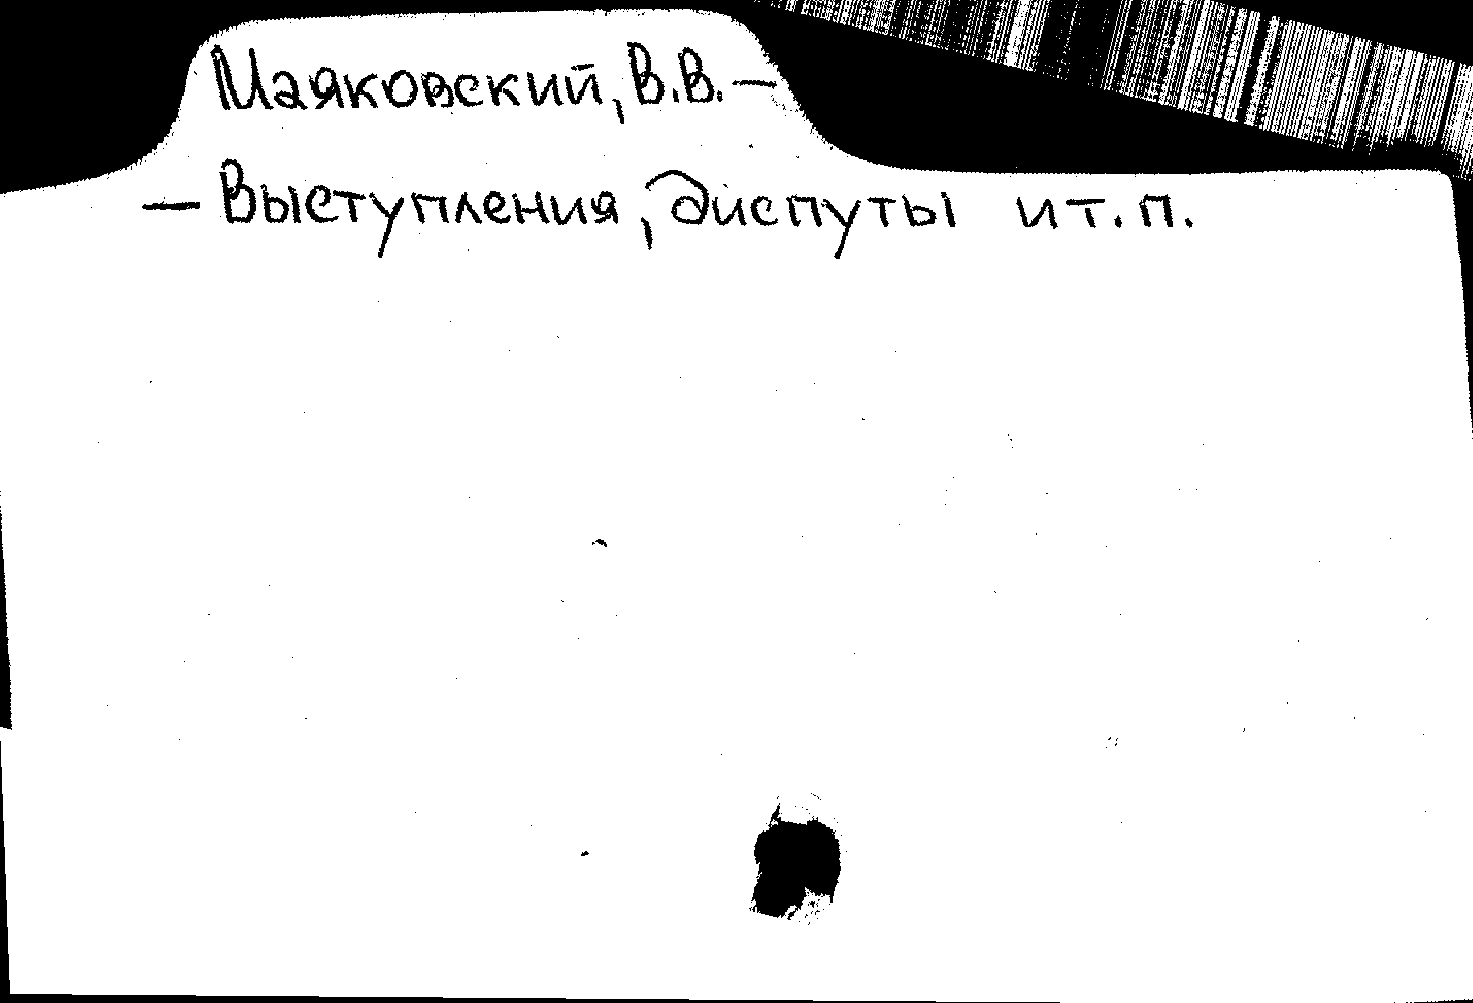 Маяковский, В.В. —
— Выступления, диспуты и т.п.